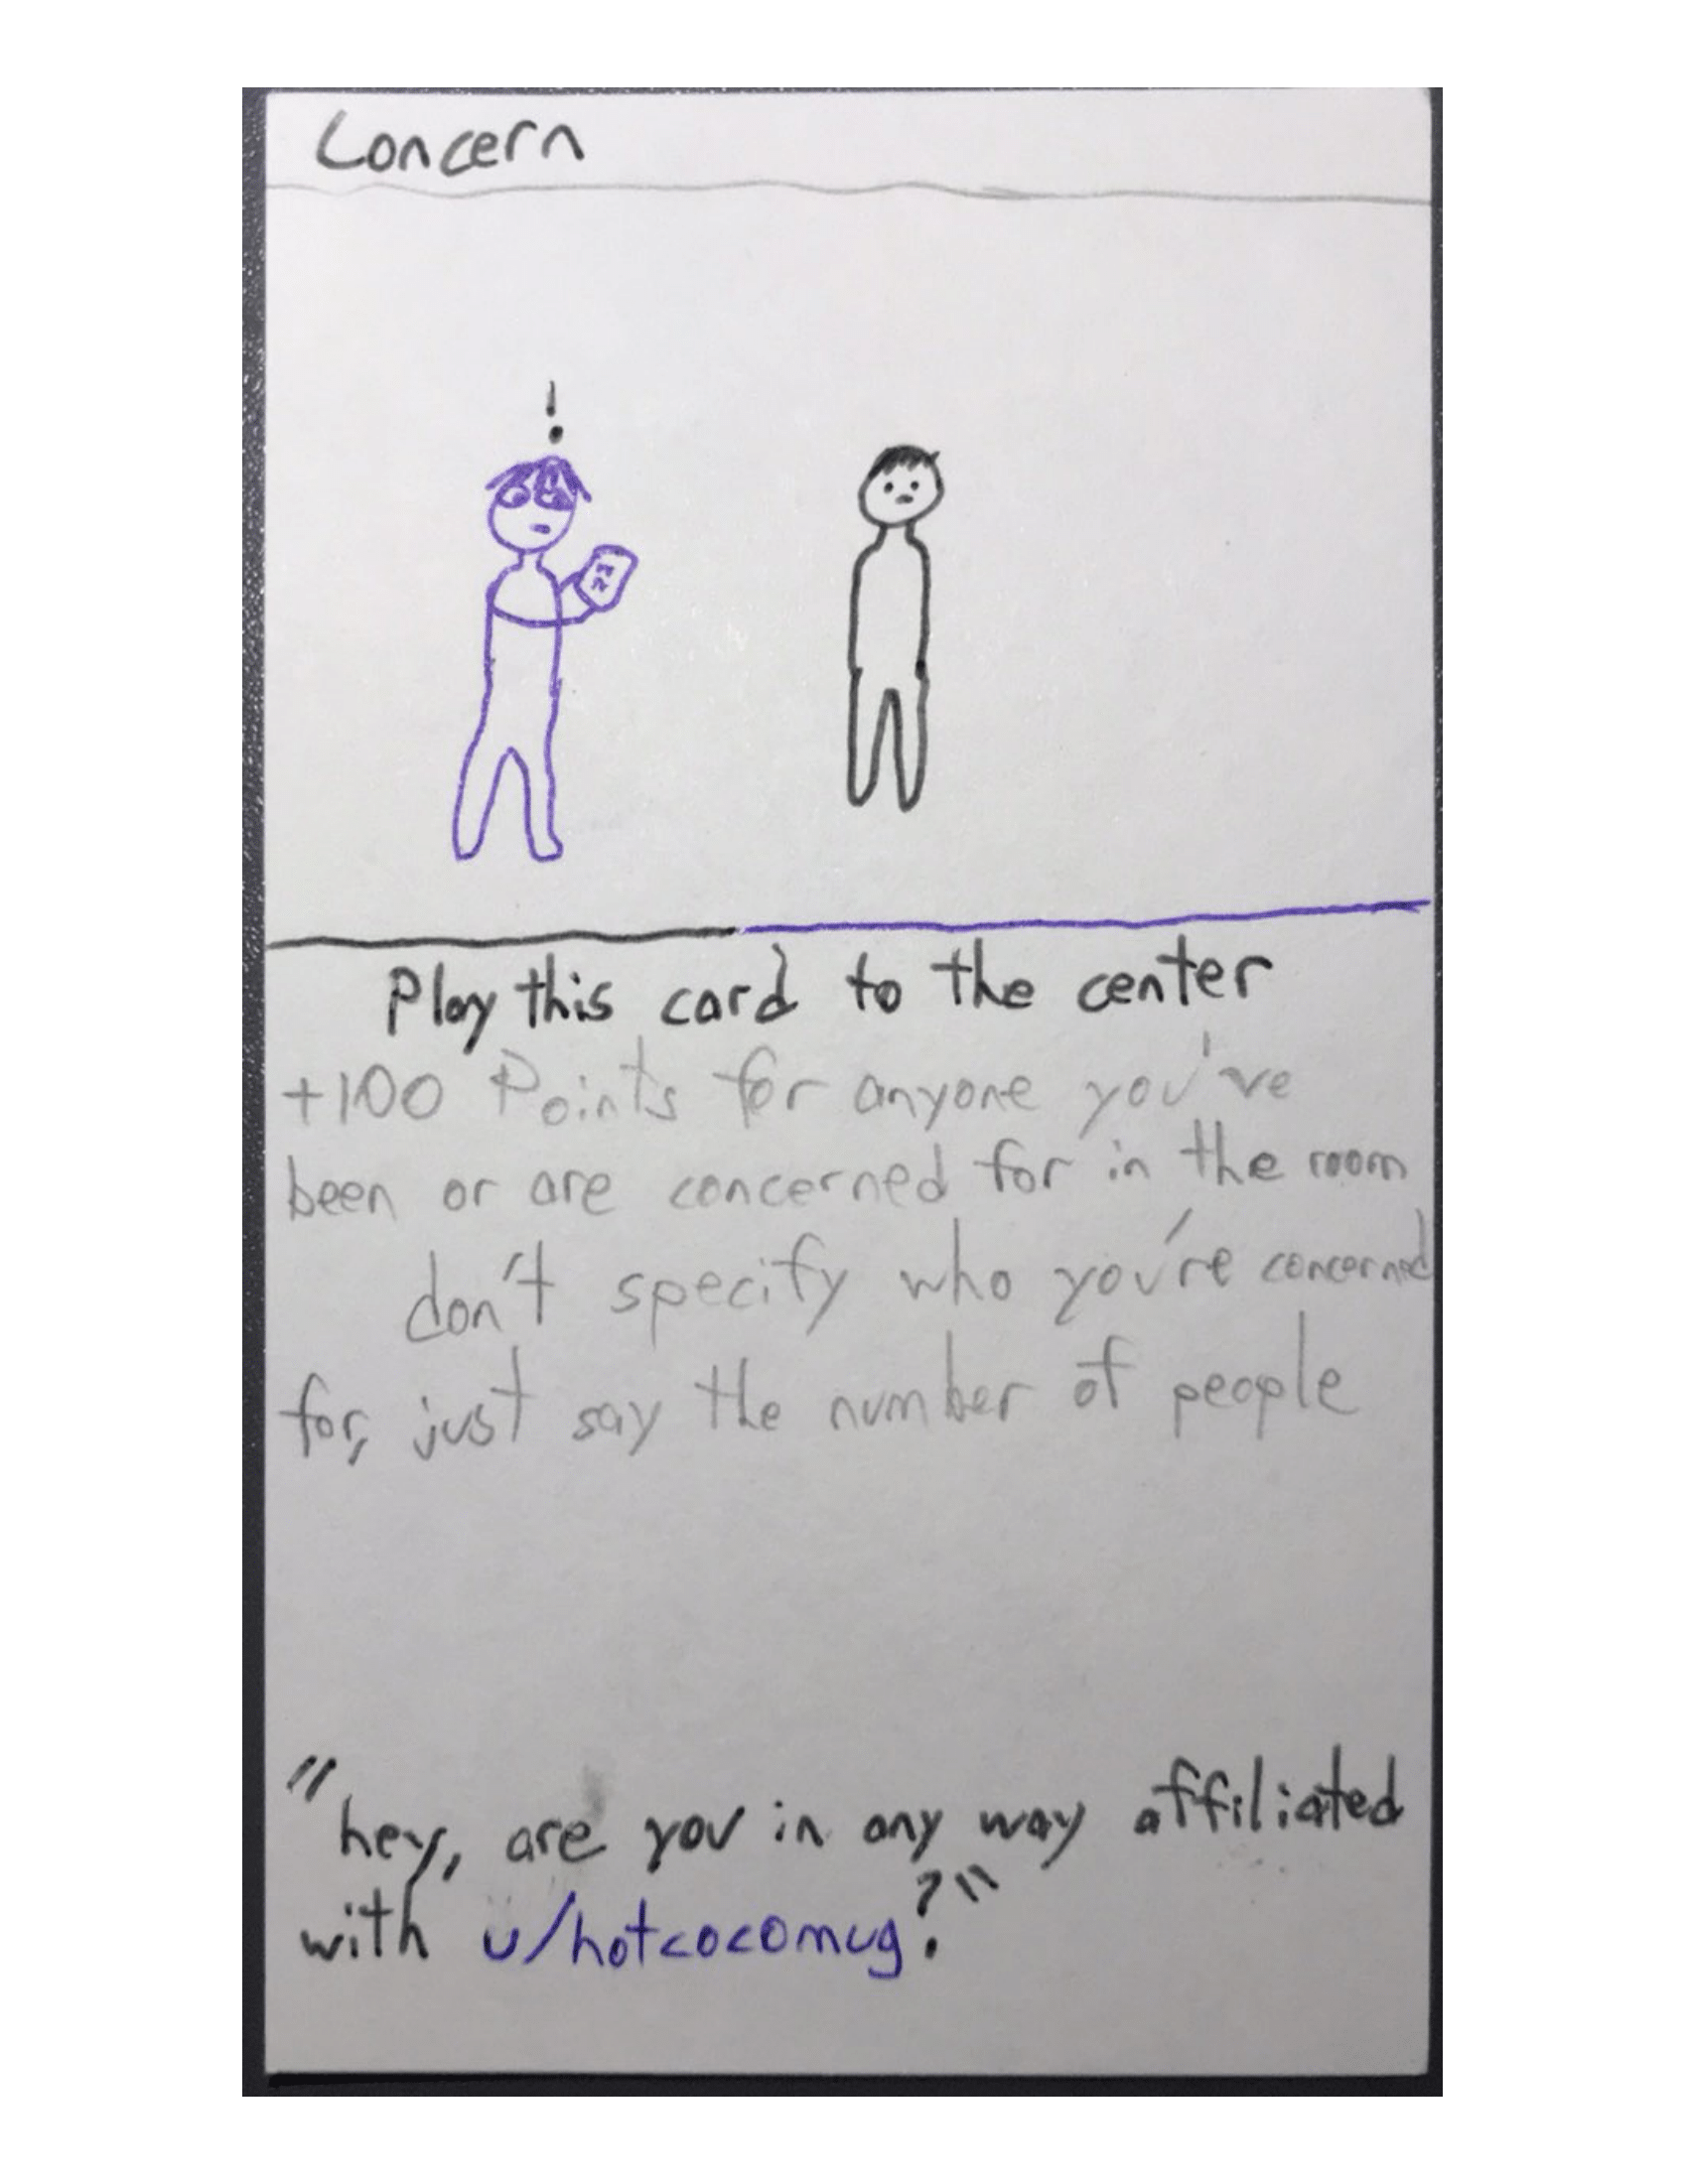 Concern
!
Play this card to the center
+100 Points for anyone you've
been or are concerned for in the room
don't specify who you're concerned
for, just say the number of people
"hey, are you in any way affiliated
with u/hotcocomug?"